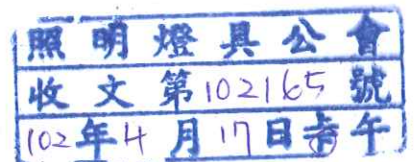 照明燈具公會
收文第102165號
102年4月17日午